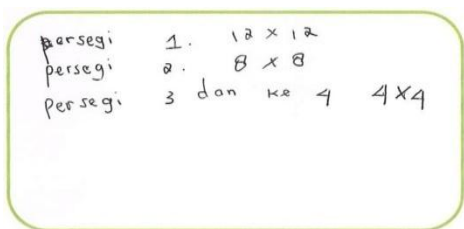 persegi 1. 12 × 12
persegi 2. 8 × 8
Persegi 3 dan ke 4 4×4